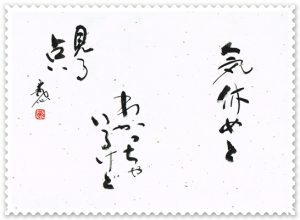 気休めと
わかっちゃ
いるけど
見る
占い